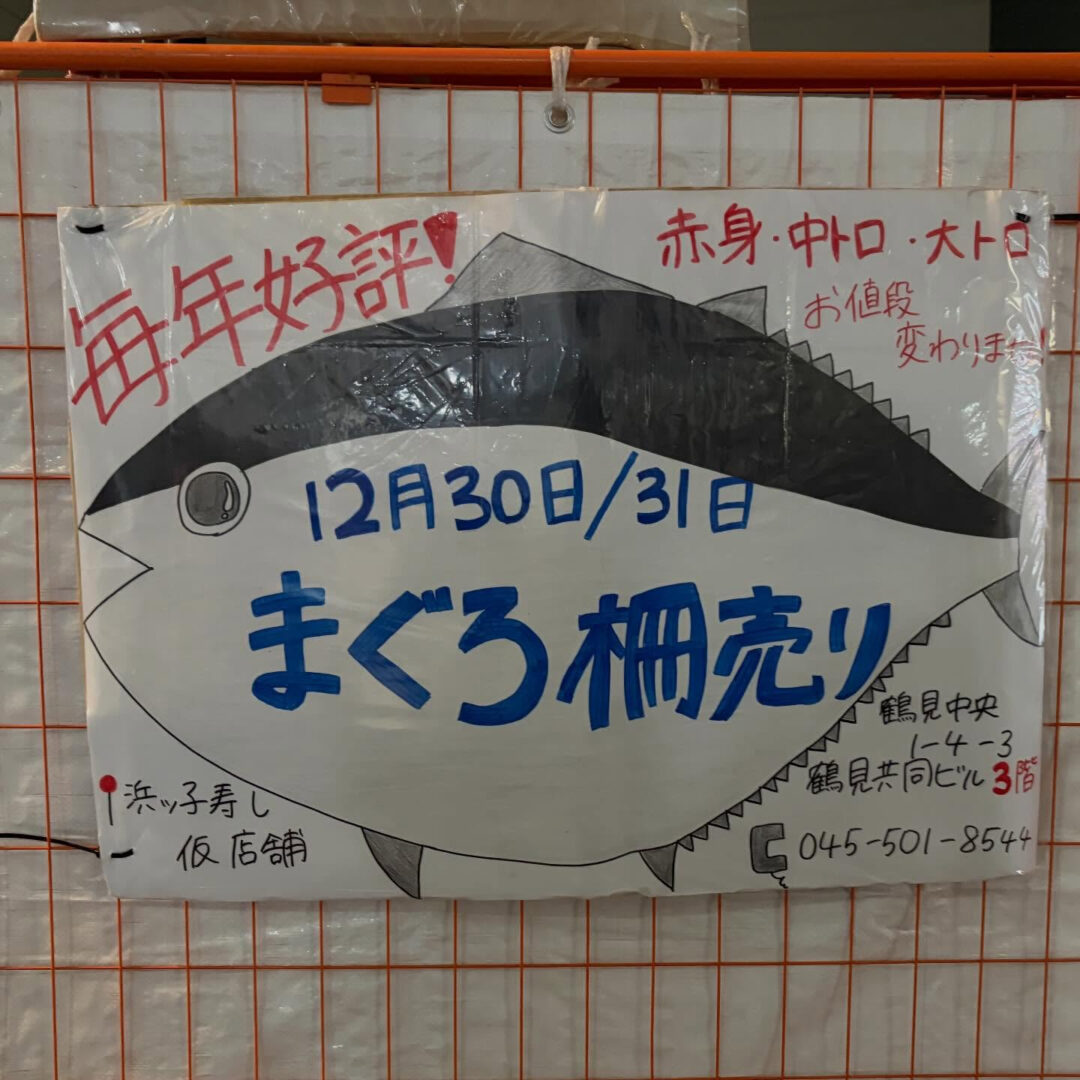 毎年好評!
赤身・中トロ・大トロ
お値段
12月30日/31日
まぐろ柵売り
鶴見中央
1-4-3
鶴見共同ビル3階
浜ッ子寿し
仮店舗
045-501-8544